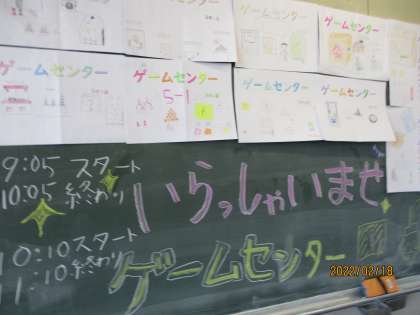 ゲームセンター
ゲームセンター
ゲームセンター
ゲームセンター
5-1
ゲームセンター
ゲームセンター
9:05 スタート
10:05 終わり
いらっしゃいませ
10:10 スタート
11:10 終わり
ゲームセンター
2022/02/18